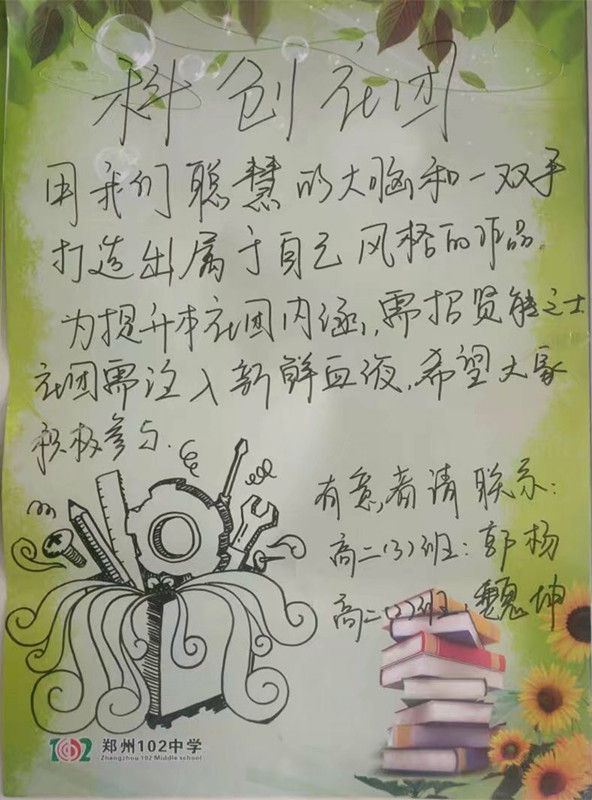 科创社团
用我们聪慧的大脑和一双手
打造出属于自己风格的作品.
为提升本社团内涵,需招贤能之士
社团需注入新鲜血液,希望大家
积极参与.
有意者请联系:
高二(3)班:郭杨
高二(2)班:魏坤
102 郑州102中学
Zhengzhou 102 Middle school